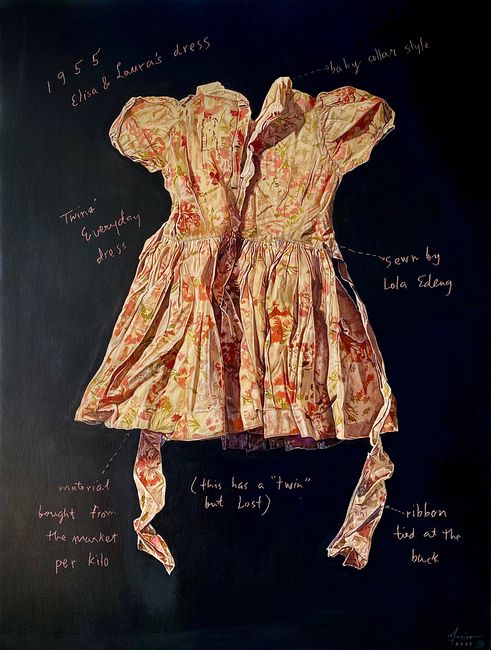 1955
Elisa & Laura's dress
baby collar style
Twins'
Everyday
dress
sewn by
Lola Edeng
material
bought from
the market
per kilo
(this has a "twin"
but Lost)
ribbon
tied at the
back